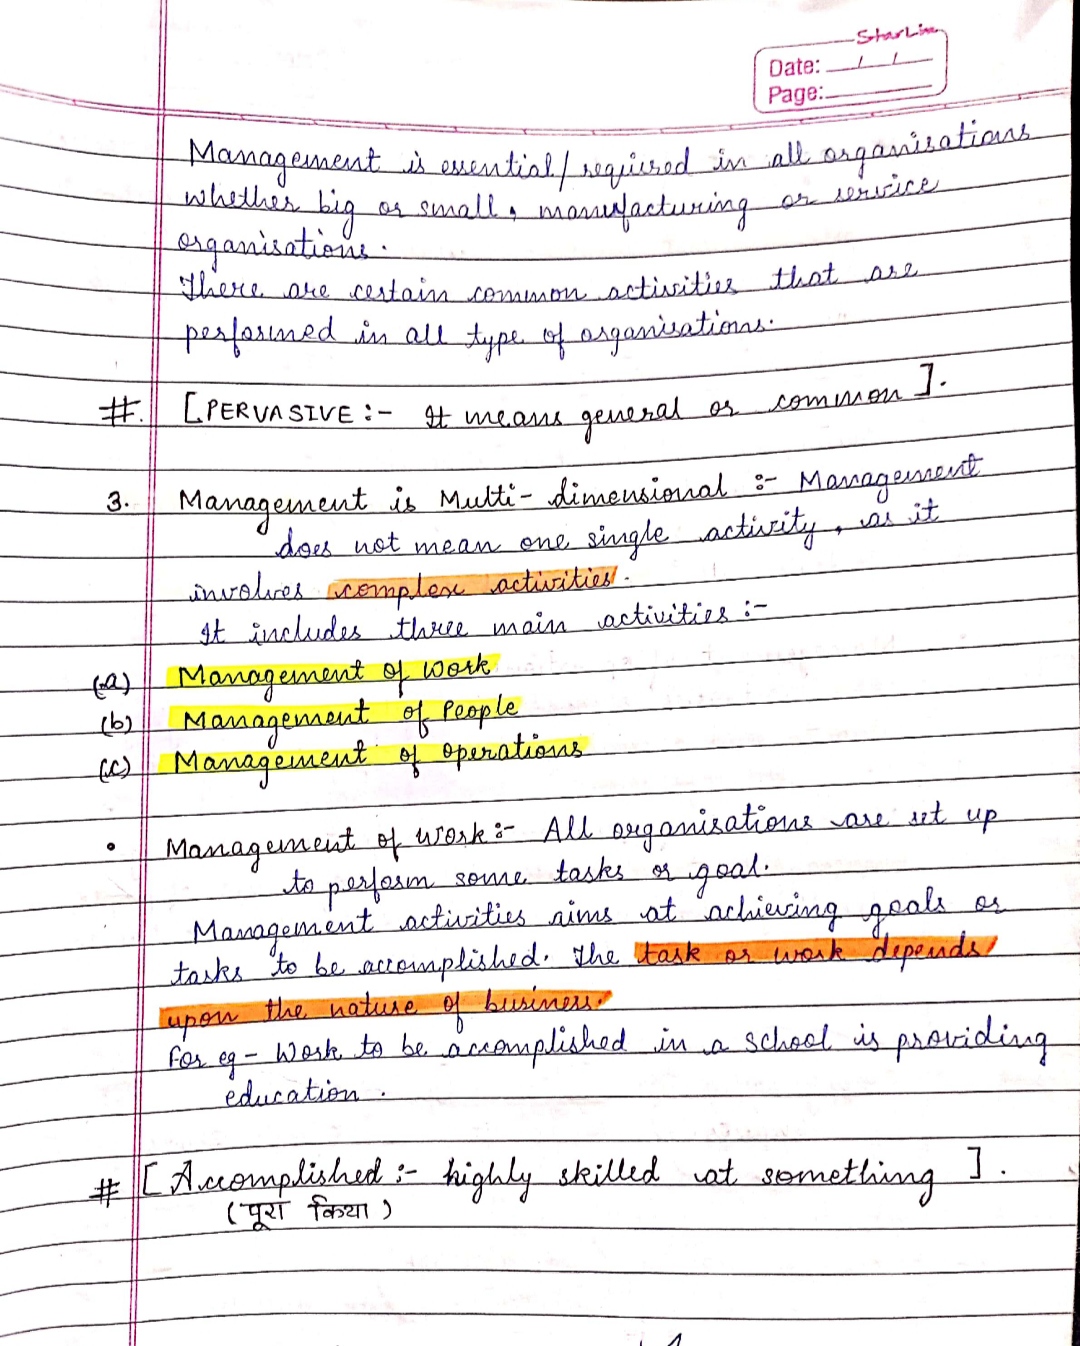 StarLine
Date: / /
Page:
Management is essential/required in all organisations
whether big or small, manufacturing or service
organisations.
There are certain common activities that are
performed in all type of organisations.
#. [PERVASIVE :- It means general or common].
3. Management is Multi-dimensional :- Management
does not mean one single activity, as it
involves complex activities.
It includes three main activities :-
(a) Management of work
(b) Management of People
(c) Management of operations
• Management of work :- All organisations are set up
to perform some tasks or goal.
Management activities aims at achieving goals or
tasks to be accomplished. The task or work depends
upon the nature of business.
For eg - Work to be accomplished in a school is providing
education.
# [Accomplished :- highly skilled at something].
(पूरा किया)